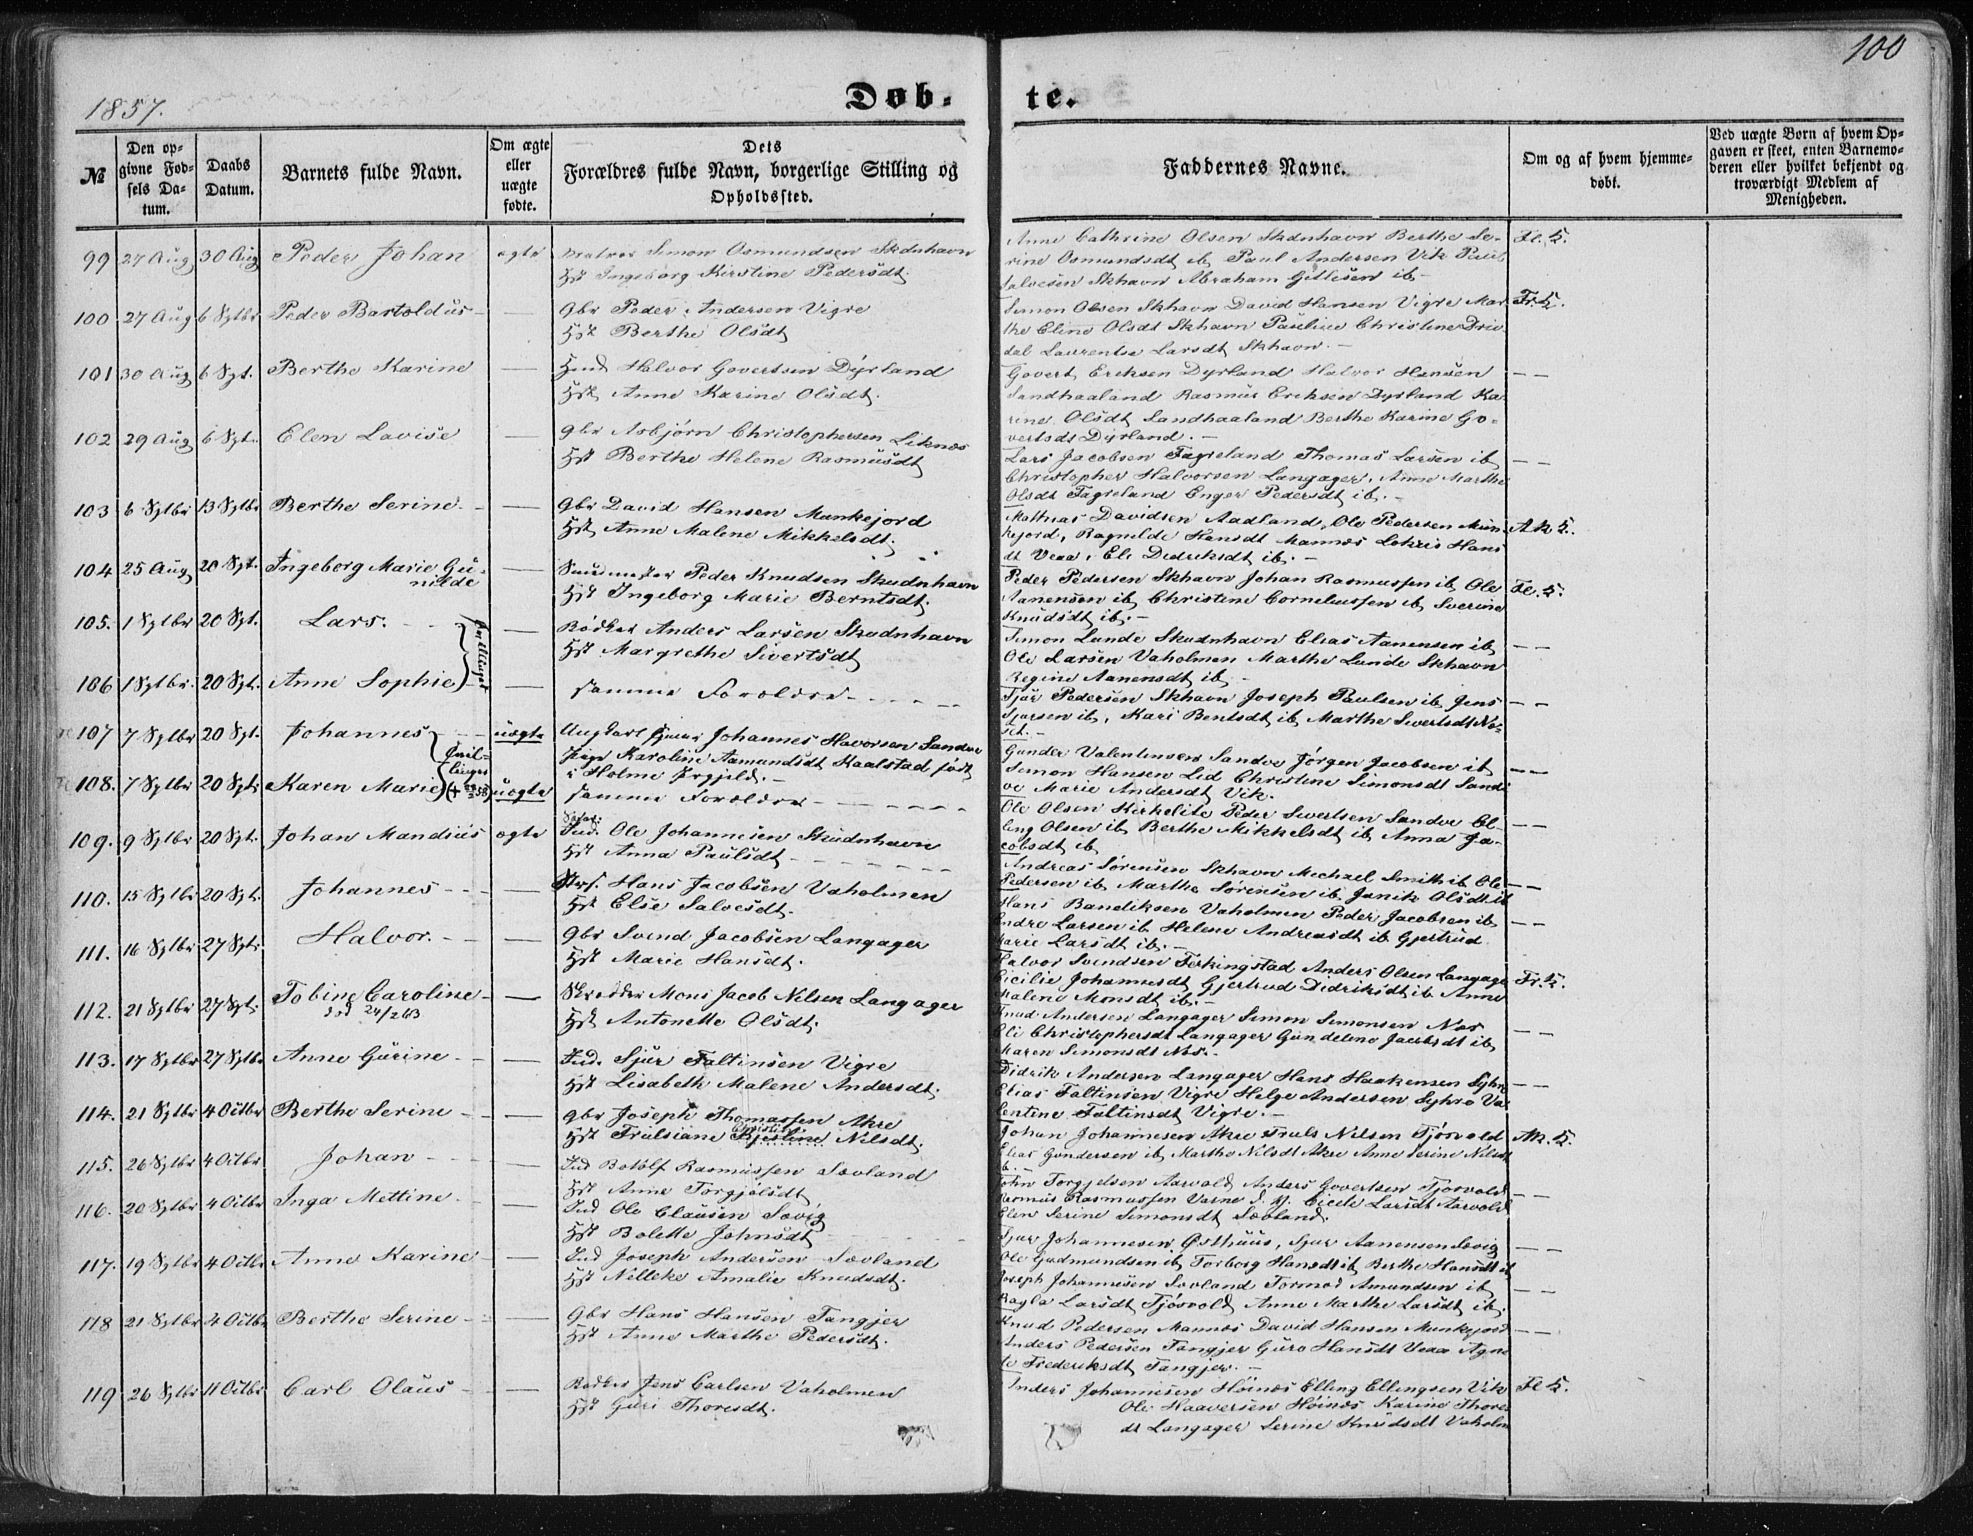 100
1857.
Døb-
te.
№
Den opgivne Fødsels Datum.
Daabs Datum.
Barnets fulde Navn.
Om ægte eller uægte fødte.
Dets
Forældres fulde Navn, borgerlige Stilling og
Opholdssted.
Faddernes Navne.
Om og af hvem hjemmedøbt.
Ved uægte Børn af hvem Opgaven er skeet, enten Barnemoderen eller hvilket bekjendt og troværdigt Medlem af Menigheden.
99 27 Aug 30 Aug Peder Johan ægte Simon Osmundsen Skdnhavn
Hst Ingeborg Kirstine Pedersdt.
Anne Cathrine Olsen Skdnhavn Berthe Se-
rine Osmundsdt ib Paul Andersen Vik Paul
Salvesen Skhavn Abraham Gitlesen ib
100 27 Aug 6 Sptbr Peder Bartoldus — Gbr Peder Andersen Vigre
Hst Berthe Olsdt
Simon Olsen Skhavn David Hansen Vigre Mar-
the Eline Olsdt Skhavn Pauline Christine
dal Laurentse Larsdt Skhavn. —
101 30 Aug 6 Spt. Berthe Karine — Halvor Govertsen Dyrland
Hst Anne Karine Olsdt.
Govert Eriksen Dyrland Halvor Hansen
Sandhaaland Rasmus Eriksen Dyrland Ka-
rine Olsdt Sandhaaland Berthe Karine Go-
vertsdt Dyrland. —
102 29 Aug 6 Spt. Elen Lavise — Gbr Asbjørn Christophersen Liknes
Hst Berthe Helene Rasmusdt
Lars Jacobsen Fagreland Thomas Larsen ib
Christopher Halvorsen Langager, Anne Marthe
Olsdt Fagreland Enger Pedersdt ib. —
103 6 Sptbr 13 Sptbr Berthe Serine — Gbr David Hansen Munkejord
Hst Anne Malene Mikkelsdt.
Mathias Davidsen Aadland, Ole Pedersen Mun-
kejord, Ragnilde Hansdt Mannes Hans
dt Veaa, Eli Didriksdt ib. —
104 25 Aug 20 Spt. Ingeborg Marie Gu-
nilde — Peder Knudsen Skudnhavn
Hst Ingeborg Marie Berntsdt.
Peder Pedersen Skhavn Johan Rasmussen ib Ole
Aanensen ib Christene Corneliussen ib Sverine
Knudsdt ib. —
105. 1 Sptbr 20 Spt. Lars. Tvillinger — Bødker Anders Larsen Skudnhavn
Hst Margrethe Sivertsdt
Simon Lunde Skudnhavn Elias Aanensen ib
Ole Larsen Vaholmen Marthe Lunde Skhavn
Regine Aanensdt ib —
106 1 Sptbr. 20 Spt. Anne Sophie — samme Forældre
Tjør Pedersen Skhavn Joseph Paulsen ib Jens
Kari Bentsdt ib Marthe Sivertsdt
107 7 Sptbr 20 Spt. Johannes Tvillinger uægte Ungkarl Johannes Havorsen Sandve
Pige Karoline Aamundsdt Kaalstad født
i Holme Prgjeld. —
Gunder Valentinsen Sandve Jørgen Jacobsen ib
Simon Hansen Lid Christine Simonsdt Sand-
ve Marie Andersdt Vik.
108. 7 Sptbr 20 Spt. Karen Marie uægte samme Forældre
Ole Olsen Kirkelite Peder Sivertsen Sandve El-
ling Olsen ib Berthe Mikkelsdt ib Anna Ja-
cobsdt ib
109. 9 Sptbr 20 Spt. Johan Mandius ægte Ind. Ole Johannesen Skudnhavn
Hst Anna Paulsdt
Andreas Sørensen Skhavn Mechael Smith ib Ole
Pedersen ib Marthe Sørensen ib Janik Olsdt ib
110. 15 Sptbr 20 Spt. Johannes — Strf. Hans Jacobsen Vaholmen
Hst Else Salvesdt.
Hans Bendiksen Vaholmen Peder Jacobsen ib
Endre Larsen ib Helene Andreasdt ib Gjertrud
Marie Larsdt ib. —
111. 16 Sptbr 27 Spt. Halvor. — Gbr Svend Jacobsen Langager
Hst Marie Hansdt.
Halvor Svendsen Ferkingstad Anders Olsen Langager
Cicilie Johannesdt Gjertrud Didriksdt ib Anne
Malene Monsdt ib. —
112. 21 Sptbr 27 Spt. Tobine Caroline
død 24/2 63 — Skrædder Mons Jacob Nilsen Langager
Hst Antonette Olsdt.
Knud Andersen Langager Simon Simonsen Nes
Eli Christophersdt Langager Gundeline Jacobsdt ib
Maren Simonsdt Nes. —
113. 17 Sptbr 27 Sptbr Anne Gurine — Ind. Sjur Faltinsen Vigre
Hst Lisabeth Malene Andersdt.
Didrik Andersen Langager Hans Haakensen Syhre
Elias Faltinsen Vigre Helge Andersen Syhre Va-
lentine Faltinsdt Vigre. —
114. 21 Sptbr 4 Octbr Berthe Serine — Gbr Joseph Thomassen Akre
Hst Trulsiane Christine Nilsdt.
Johan Johannesen Akre Truls Nilsen Tjøsvold
Elias Gundersen ib Marthe Nilsdt Akre Anne Serine Nilsdt
ib. —
115. 26 Sptbr 4 Octbr Johan — Ind Botolf Rasmussen Sævland
Hst Anne Torgjelsdt
John Torgjelsen Aarvold Anders Govertsen Tjøsvold
Rasmus Rasmussen Varne Cicele Larsdt Aarvold
Elen Serine Simonsdt Sævland.
116. 20 Sptbr 4 Octbr Inga Mettine — Ind Ole Clausen Sævig
Hst Bolette Johnsdt
Sjur Johannesen Østhuus, Sjur Aanensen Sævig
Ole Gudmundsen ib Torborg Hansdt ib Berthe Hansdt ib
117. 19 Sptbr 4 Octbr Anne Karine — Ind Joseph Andersen Sævland
Hst Nilleke Amalie Knudsdt.
Joseph Johannesen Sævland Tormod Amundsen ib
Ragla Larsdt Tjøsvold, Anne Marthe Larsdt ib.
118 21 Sptbr 4 Octbr Berthe Serine — Gbr Hans Hansen Tangjer
Hst Anne Marthe Pedersdt.
Knud Pedersen Mannes David Hansen Munkejord
Anders Pedersen Tangjer Guro Hansdt Veaa Agne-
te Frederiksdt Tangjer. —
119 26 Sptbr 11 Octbr Carl Olaus — Bødker Jens Carlsen Vaholmen
Hst Guri Thoresdt.
Anders Johannesen Høines Elling Ellingsen Vik
Ole Haaversen Høines Karine Thores
dt Langager Serine Knudsdt Vaholm